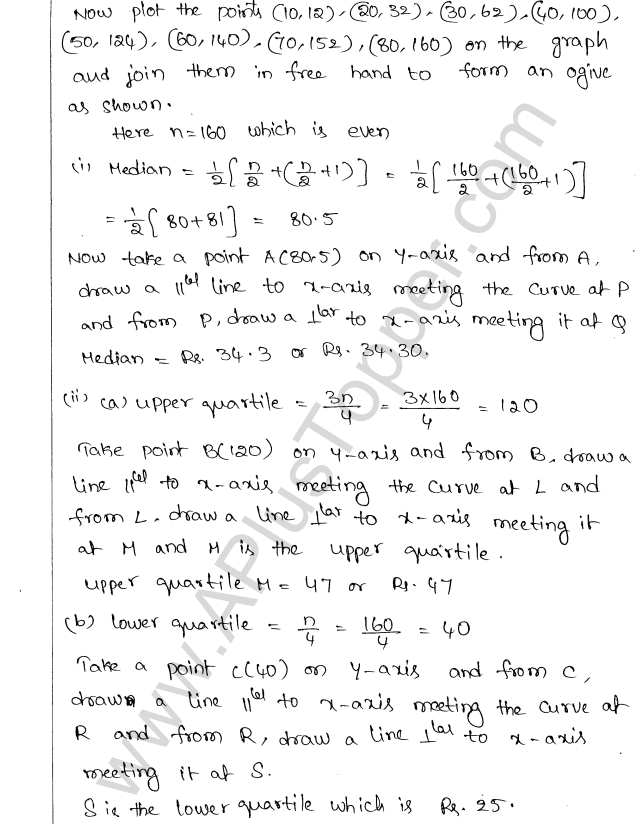 Now plot the points (10,12), (20,32), (30,62), (40,100),
(50,124), (60,140), (70,152), (80,160) on the graph
and join them in free hand to form an ogive
as shown.
Here n=160 which is even
(i) Median = 1/2 [n/2 + (n/2 + 1)] = 1/2 [160/2 + (160/2 + 1)]
= 1/2 [80+81] = 80.5
Now take a point A(80.5) on y-axis and from A,
draw a ||lel line to x-axis meeting the curve at P
and from P, draw a ⊥lar to x-axis meeting it at Q
Median = Rs. 34.3 or Rs. 34.30.
(ii) (a) upper quartile = 3n/4 = 3×160/4 = 120
Take point B(120) on y-axis and from B, draw a
line ||lel to x-axis meeting the curve at L and
from L, draw a line ⊥lar to x-axis meeting it
at M and M is the upper quartile.
upper quartile M = 47 or Rs. 47
(b) lower quartile = n/4 = 160/4 = 40
Take a point C(40) on y-axis and from C,
draw a line ||lel to x-axis meeting the curve at
R and from R, draw a line ⊥lar to x-axis
meeting it at S.
S is the lower quartile which is Rs. 25.
www.APlusTopper.com